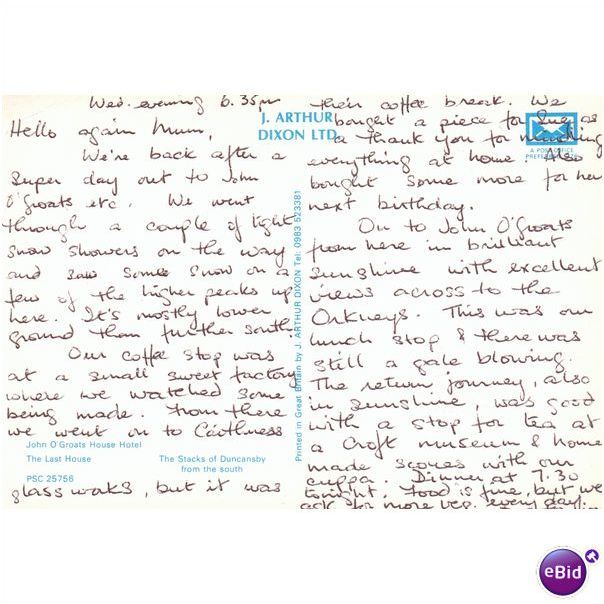 Wed. evening 6.35pm
Hello again Mum,
We're back after a
super day out to John
O'Groats etc. We went
through a couple of light
snow showers on the way
and saw some snow on a
few of the higher peaks up
here. It's mostly lower
ground than further south.
Our coffee stop was
at a small sweet factory
where we watched some
being made. From there
we went on to Caithness
glassworks, but it was
their coffee break. We
bought a piece for as
a thank you for
everything at home. Also
bought some more for her
next birthday.
On to John O'Groats
from here in brilliant
sunshine with excellent
views across to the
Orkneys. This was our
lunch stop & there was
still a gale blowing.
The return journey, also
in sunshine, was good
with a stop for tea at
a Croft museum & home
made scones with our
cuppa. Dinner at 7.30
tonight. Food is fine, but we
ask for more veg. every day.
J. ARTHUR
DIXON LTD.
A POST OFFICE
PREFERRED
Printed in Great Britain by J. ARTHUR DIXON Tel: 0983 523381
John O'Groats House Hotel
The Last House
The Stacks of Duncansby
from the south
PSC 25758
eBid